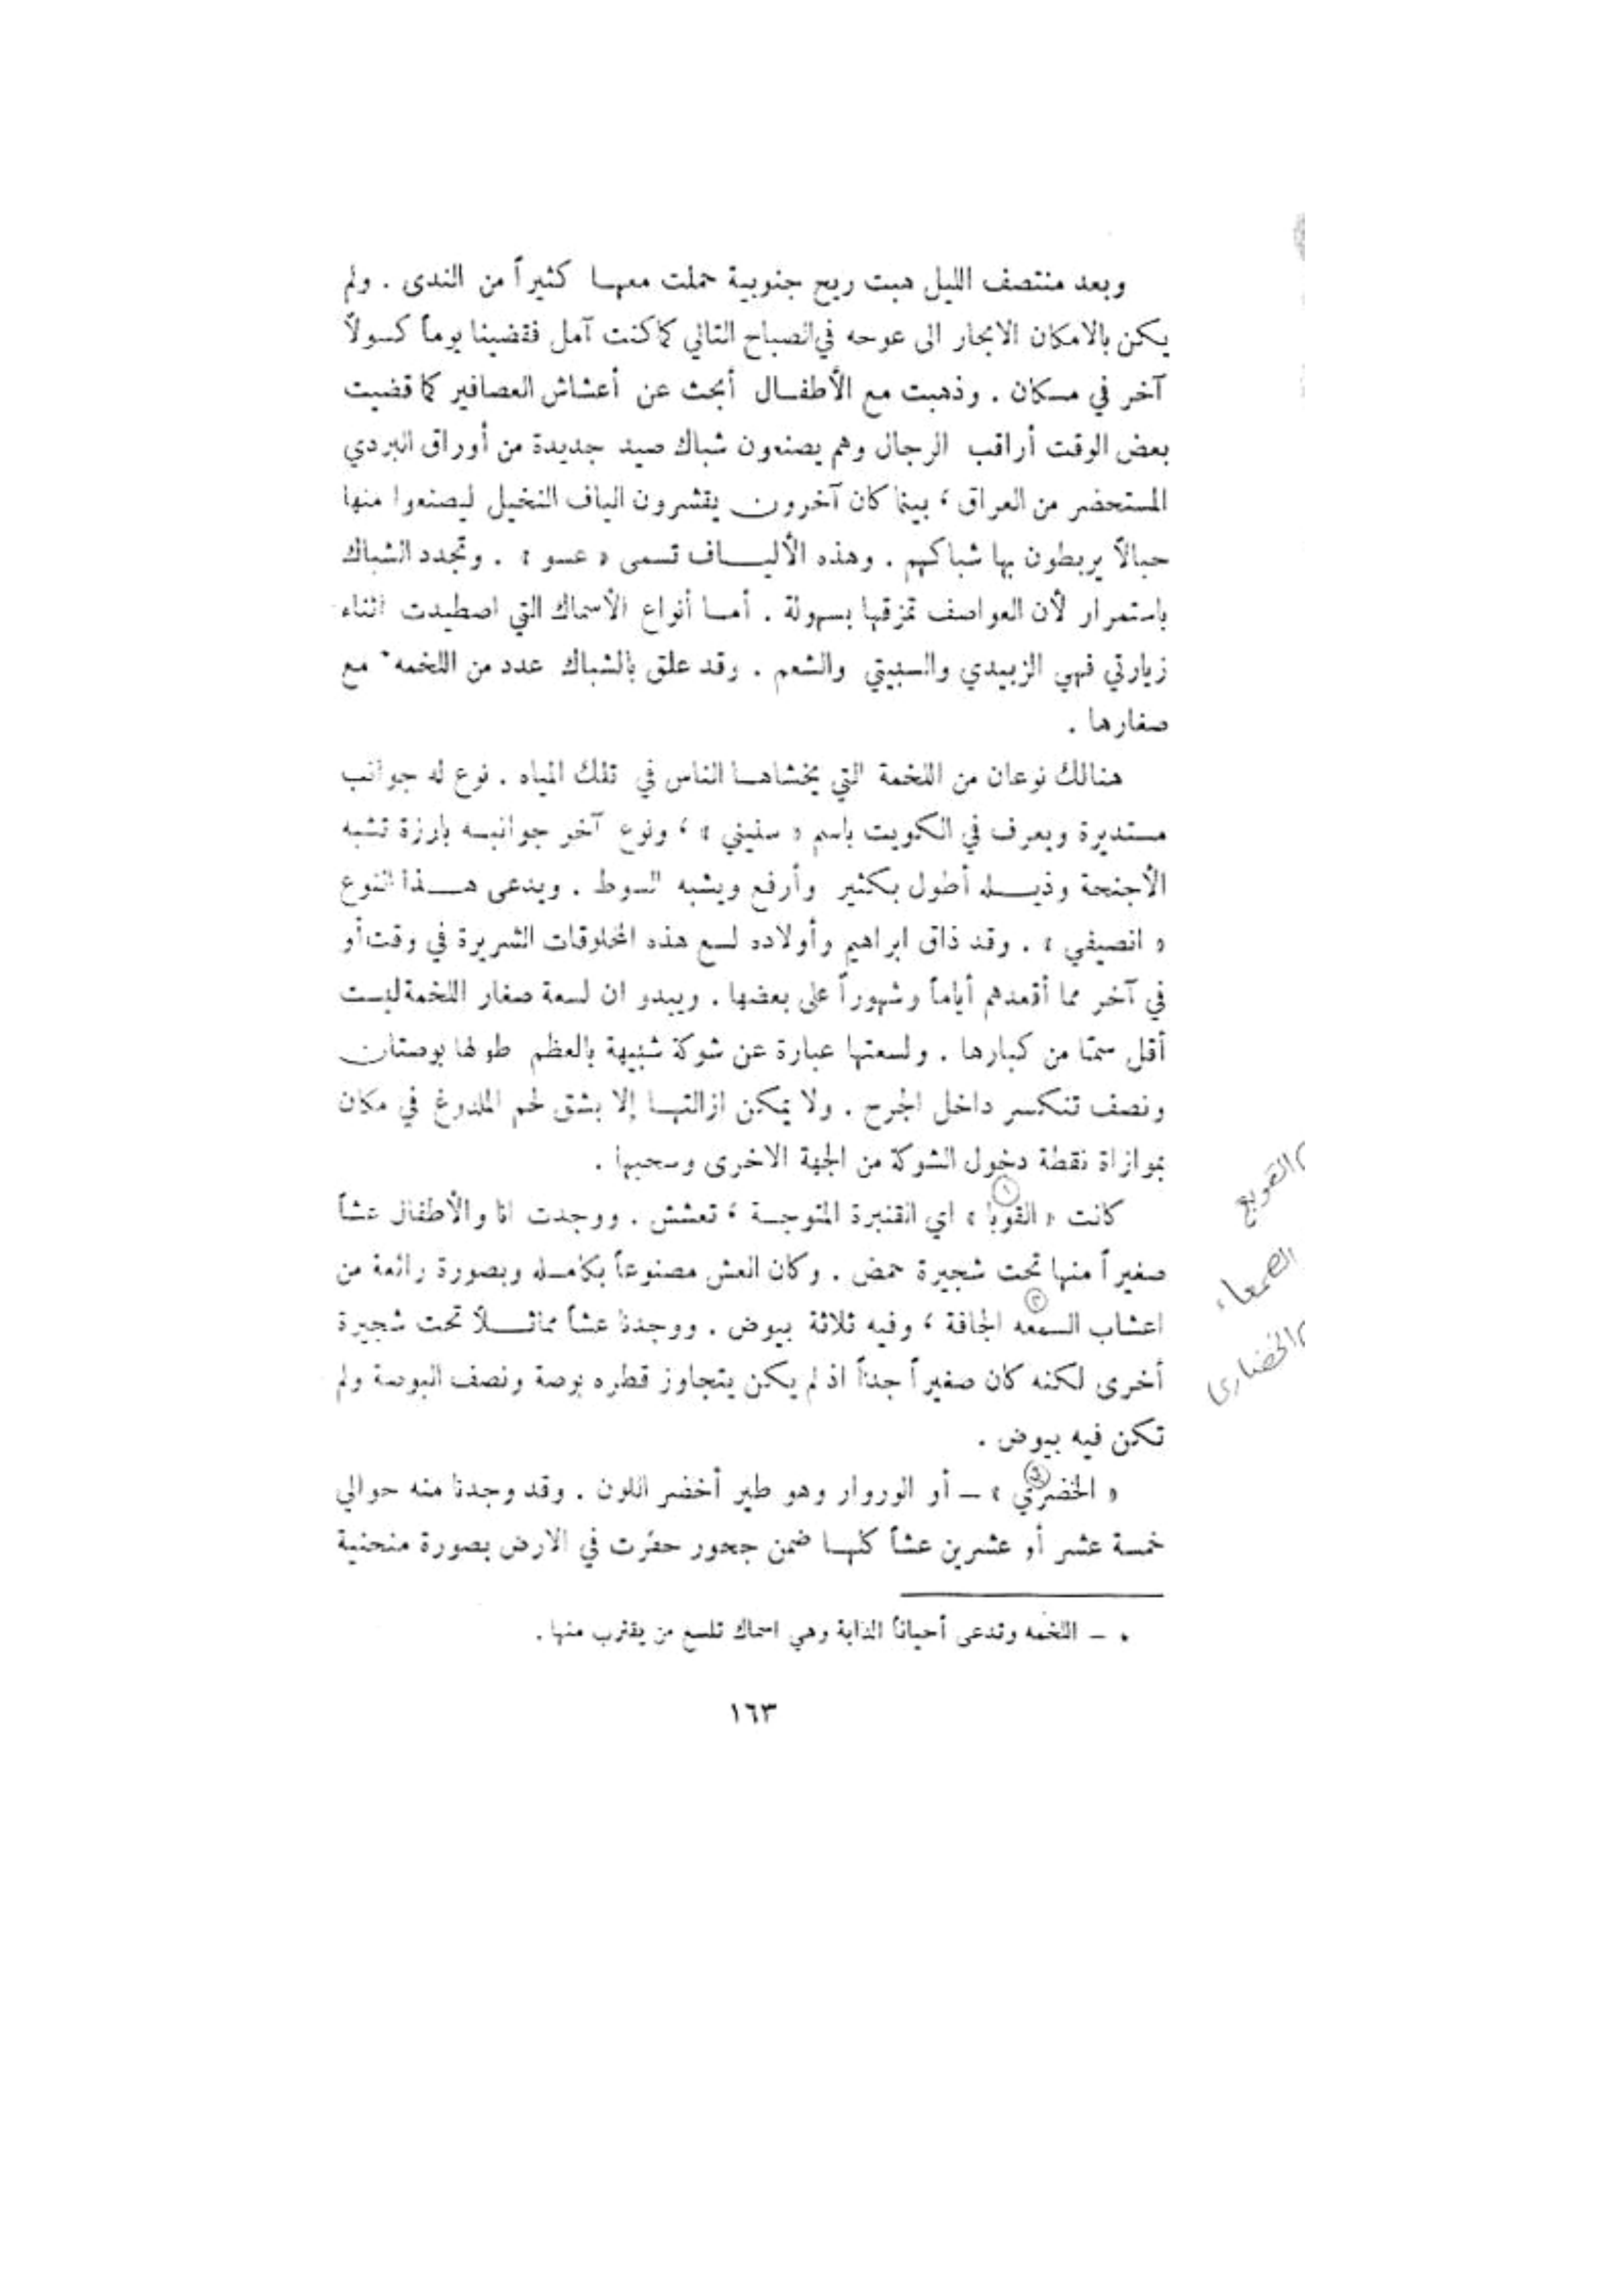 وبعد منتصف الليل هبت ريح جنوبية حملت معهـا كثيراً من الندى . ولم
يكن بالامكان الابحار الى عوحه في الصباح التالي كما كنت آمل فقضينا يوماً كسولاً
آخر في مسكان . وذهبت مع الأطفـال أبحث عن أعشاش العصافير كما قضيت
بعض الوقت أراقب الرجال وهم يصنعون شباك صيد جديدة من أوراق البردي
المستحضر من العراق ، بينما كان آخرون يقشرون الياف النخيل ليصنعوا منها
حبالاً يربطون بها شباكهم . وهذه الأليـــاف تسمى « عسو » . وتجدد الشباك
باستمرار لأن العواصف تمزقها بسهولة . أمـا أنواع الأسماك التي اصطيدت اثناء
زيارتي فهي الزبيدي والسبيتي والشعم . وقد علق بالشباك عدد من اللخمه * مع
صغارها .
هنالك نوعان من اللخمة التي يخشاهـا الناس في تلك المياه . نوع له جوانب
مستديرة ويعرف في الكويت باسم « سنيني » ، ونوع آخر جوانبـه بارزة تشبه
الأجنحة وذيـــله أطول بكثير وأرفع ويشبه السوط . ويدعى هـــذا النوع
« انصيفي » . وقد ذاق ابراهيم وأولاده لسع هذه المخلوقات الشريرة في وقت أو
في آخر مما أقعدهم أياماً وشهوراً على بعضها . ويبدو ان لسعة صغار اللخمة ليست
أقل سمّا من كبارها . ولسعتها عبارة عن شوكة شبيهة بالعظم طولها بوصتان
ونصف تنكسر داخل الجرح . ولا يمكن ازالتهـا إلا بشق لحم الملدوغ في مكان
بموازاة نقطة دخول الشوكة من الجهة الاخرى وسحبها .
كانت « القوبا » (١) اي القنبرة المتوجـة ، تعشش . ووجدت انا والأطفال عشاً
صغيراً منها تحت شجيرة حمض . وكان العش مصنوعاً بكامـله وبصورة رائعة من
اعشاب السمعه (٢) الجافة ، وفيه ثلاثة بيوض . ووجدنا عشاً مماثـــلاً تحت شجيرة
أخرى لكنه كان صغيراً جداً اذ لم يكن يتجاوز قطره بوصة ونصف البوصة ولم
تكن فيه بيوض .
« الخضرّي » (٣) – أو الوروار وهو طير أخضر اللون . وقد وجدنا منه حوالي
خمسة عشر أو عشرين عشاً كلهـا ضمن جحور حفرت في الارض بصورة منحنية
* – اللخمه وتدعى أحياناً الذابة وهي اسماك تلسع من يقترب منها .
١٦٣
القوبع
الصمعاء
الخضاري